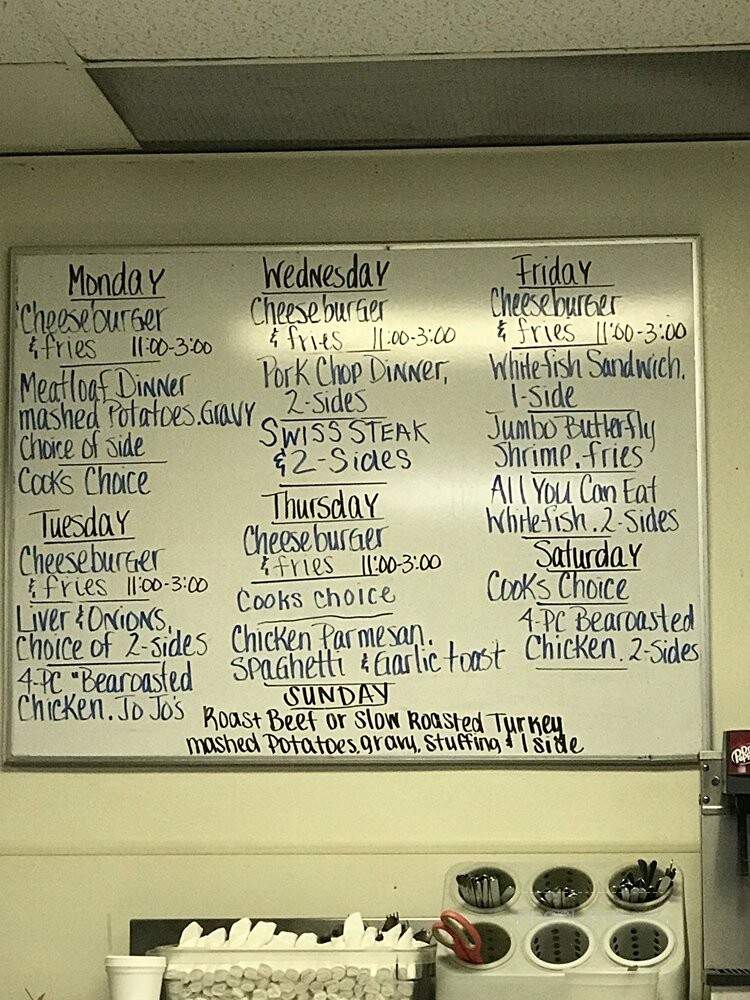 Monday
Cheeseburger
& fries 11:00-3:00
Meatloaf Dinner
mashed Potatoes. Gravy
Choice of side
Cooks Choice
Tuesday
Cheeseburger
& fries 11:00-3:00
Liver & Onions,
Choice of 2-sides
4-PC "Bearoasted
Chicken. Jo Jo's
Wednesday
Cheeseburger
& fries 11:00-3:00
Pork Chop Dinner,
2-sides
SWISS STEAK
& 2-Sides
Thursday
Cheeseburger
& fries 11:00-3:00
Cooks choice
Chicken Parmesan.
Spaghetti & Garlic toast
Friday
Cheeseburger
& fries 11:00-3:00
Whitefish Sandwich.
1-side
Jumbo Butterfly
Shrimp. fries
All You Can Eat
Whitefish. 2-Sides
Saturday
Cooks Choice
4-PC Bearoasted
Chicken. 2-sides
SUNDAY
Roast Beef or Slow Roasted Turkey
mashed Potatoes, gravy, Stuffing & 1 side
Dr Pepper